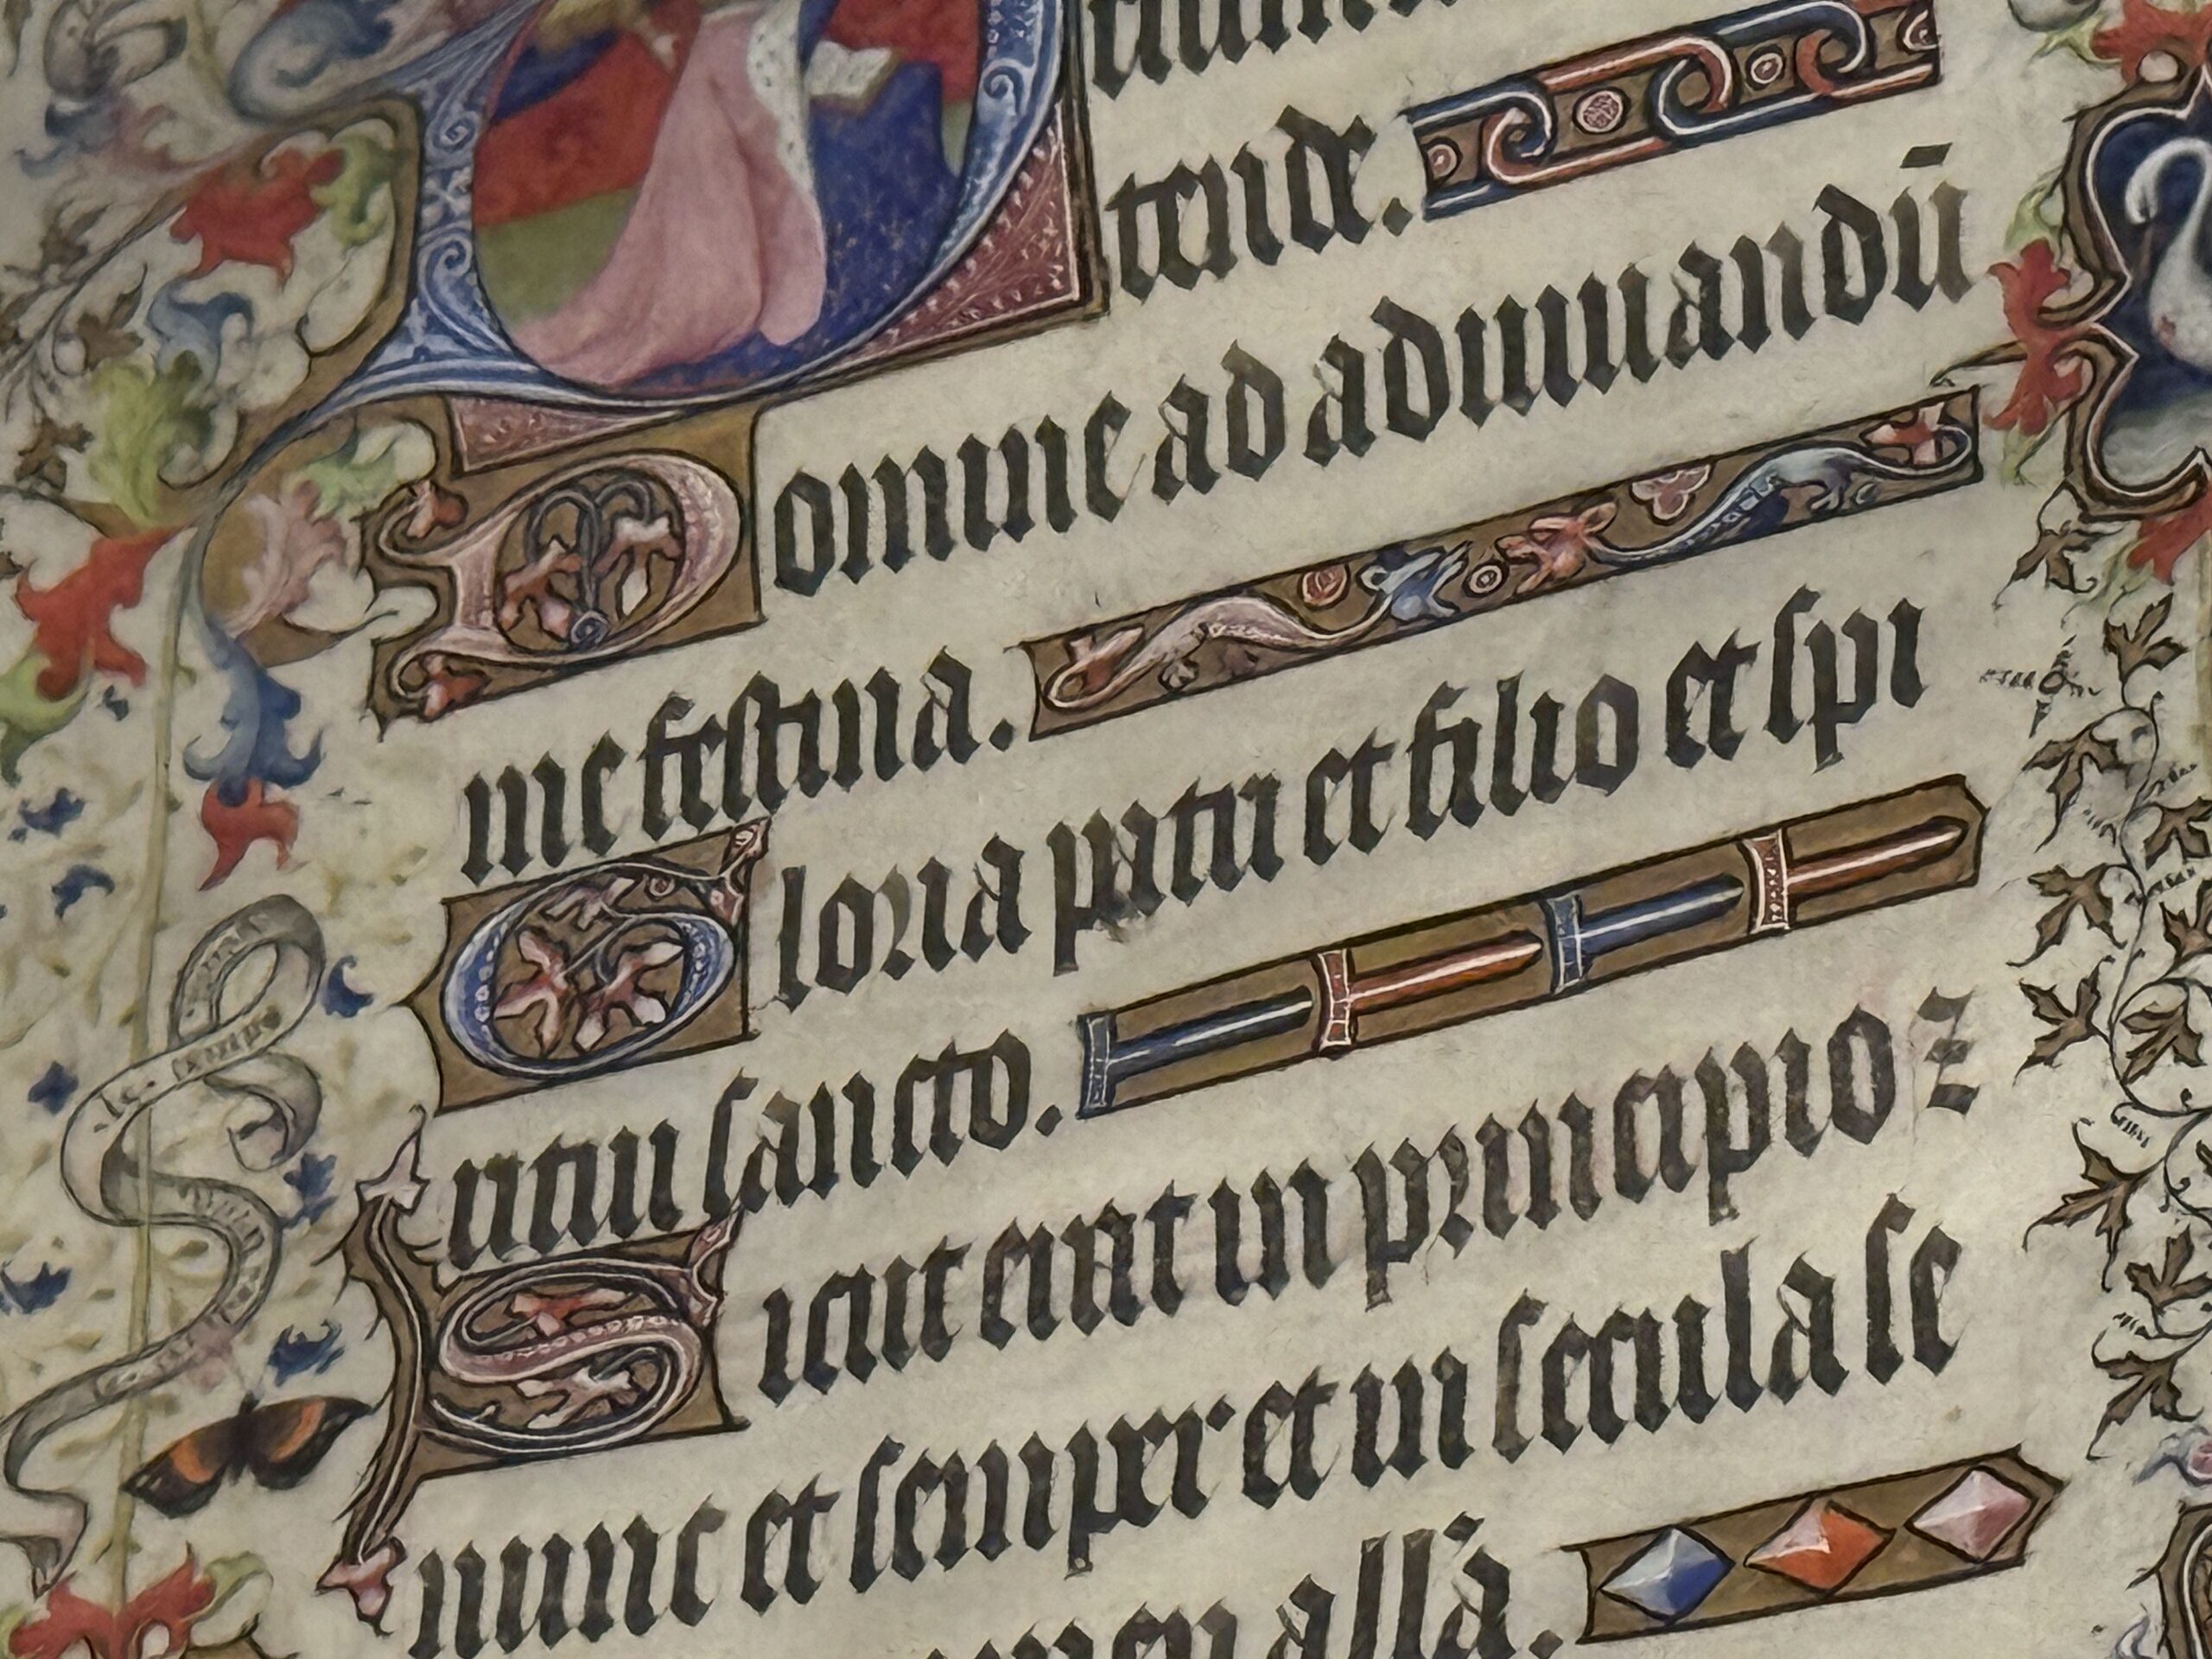 tende.
Domine ad adiuuandū
me festina.
Gloria patri et filio et spi
ritui sancto.
Sicut erat in principio z
nunc et semper et in secula se
amen allā.